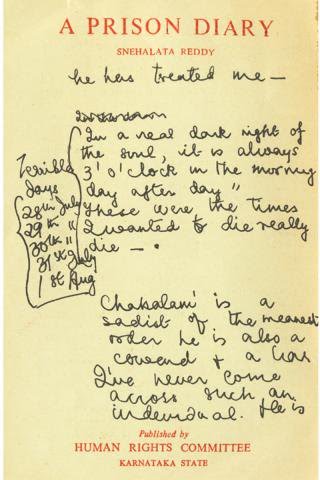 A PRISON DIARY
SNEHALATA REDDY
he has treated me —
In a real dark night of
the soul, it is always
3' o'clock in the morning
day after day "
These were the times
I wanted to die really
die — .
Terrible
days
28th July
29th "
30th "
31st July
1st Aug
Chakalam' is a
sadist of the meanest
order he is also a
coward + a liar
I've never come
across such an
individual. He is
Published by
HUMAN RIGHTS COMMITTEE
KARNATAKA STATE